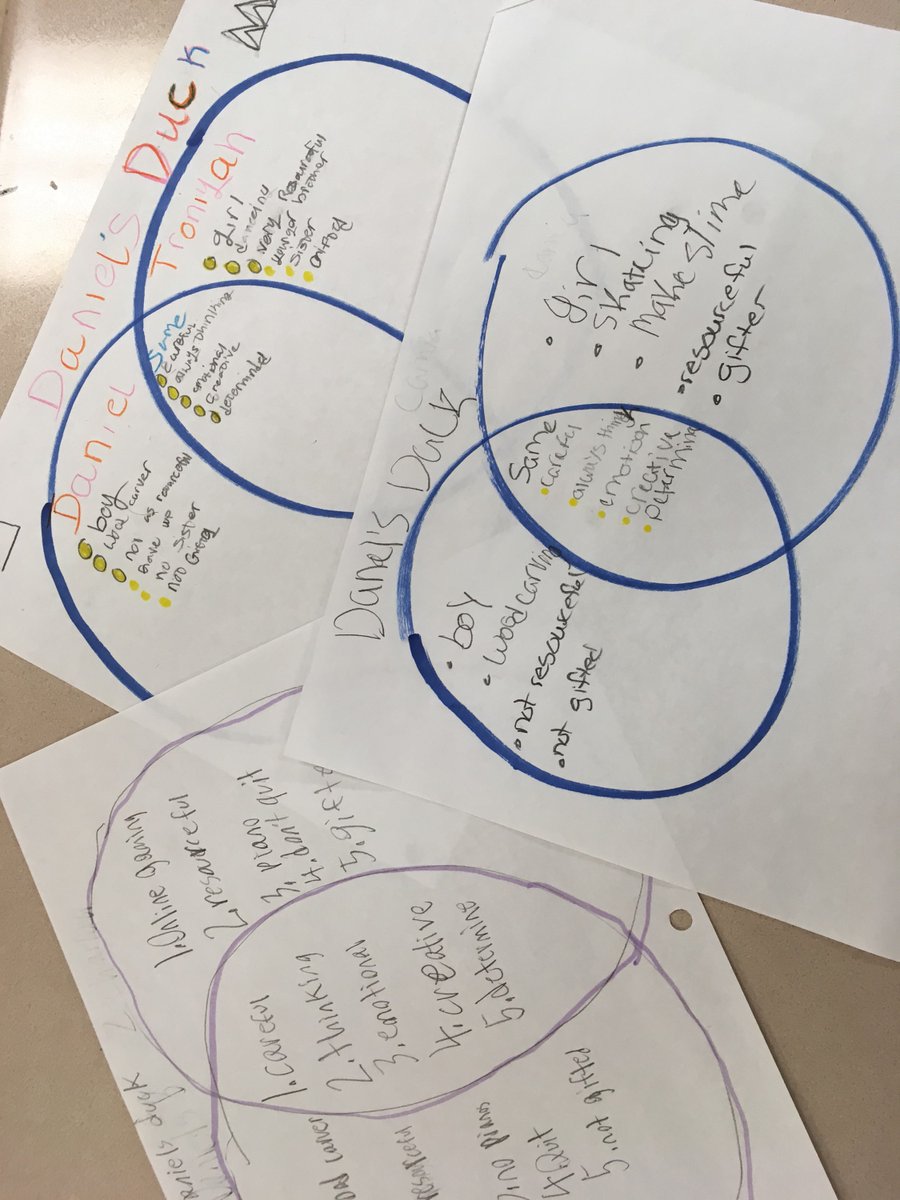 Daniel's Duck
Troniyah
girl
danceing
very Resourceful
younger brother
Sister
Gifted
Same
careful
always thinking
emotional
Creative
determinded
Daniel
boy
wood carver
not as resourceful
Gave up
no Sister
not Gifted
Danel's Duck
• girl
• skateing
• make slime
• resourceful
• gifter
Same
• careful
• always think
• emotion
• creative
• Determine
• boy
• wood carving
• not resourceful
• not gifted
1. Online gaming
2. resourceful
3. Piano
4. don't quit
5. gifte
1. careful
2. thinking
3. emotional
4. creative
5. determine
carver
no Piano
4. Quit
5. not gifted